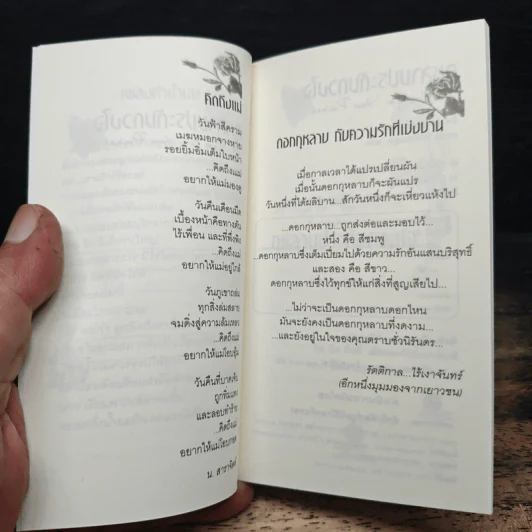 คิดถึงแม่
วันฟ้าสีคราม
เมฆหมอกจางหาย
รอยยิ้มอิ่มเต็มใบหน้า
...คิดถึงแม่
อยากให้แม่มองดู
วันคืนเดือนมืด
เบื้องหน้าคือทางตัน
ไร้เพื่อน และที่พึ่งพิง
...คิดถึงแม่
อยากให้แม่อยู่ใกล้
วันภูเขาถล่ม
ทุกสิ่งล่มสลาย
จมดิ่งสู่ความล้มเหลว
...คิดถึงแม่
อยากให้แม่โอบอุ้ม
วันคืนที่บาดเจ็บ
ถูกทิ่มแทง
และลอบทำร้าย
...คิดถึงแม่
อยากให้แม่โอบกอด
น.
ดอกกุหลาบ กับความรักที่เบ่งบาน
เมื่อกาลเวลาได้แปรเปลี่ยนผัน
เมื่อนั้นดอกกุหลาบก็จะผันแปร
วันหนึ่งที่ได้ผลิบาน...สักวันหนึ่งก็จะเหี่ยวแห้งไป
...ดอกกุหลาบ...ถูกส่งต่อและมอบไว้...
หนึ่ง คือ สีชมพู
...ดอกกุหลาบซึ่งเต็มเปี่ยมไปด้วยความรักอันแสนบริสุทธิ์
และสอง คือ สีขาว...
ดอกกุหลาบซึ่งไว้ทุกข์ให้แก่สิ่งที่สูญเสียไป...
...ไม่ว่าจะเป็นดอกกุหลาบดอกไหน
มันจะยังคงเป็นดอกกุหลาบที่งดงาม...
...และยังอยู่ในใจของคุณตราบชั่วนิรันดร...
รัตติกาล...ไร้เงาจันทร์
(อีกหนึ่งมุมมองจากเยาวชน)